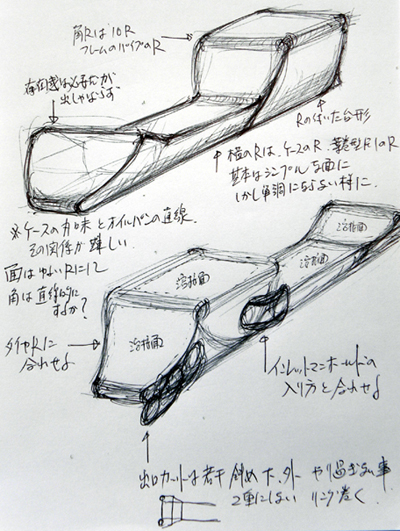 角Rは10R
フレームのパイプのR
存在感は必要だが
出しゃばらず
Rの付いた台形
横のRは、ケースのR
基本はシンプルな面に
しかし単調にならない様に
※ケースの丸味とオイルパンの直線
その関係が難しい
面はゆるいRにして
角は直線的に
するか？
溶接面
溶接面
溶接面
溶接面
タイヤRに
合わせる
インレットマニホールドの
入り方と合わせる
出口カットは若干斜め下、外 やり過ぎない事
2重にしない リング巻く